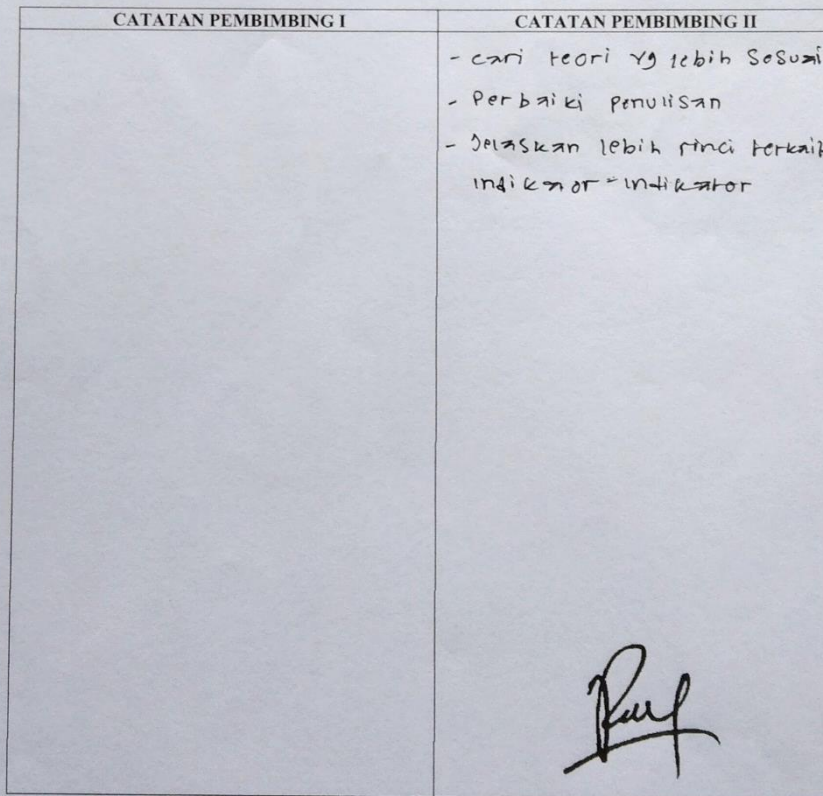 CATATAN PEMBIMBING I
CATATAN PEMBIMBING II
- cari teori yg lebih sesuai
- Perbaiki penulisan
- Jelaskan lebih rinci terkait
indikator-indikator